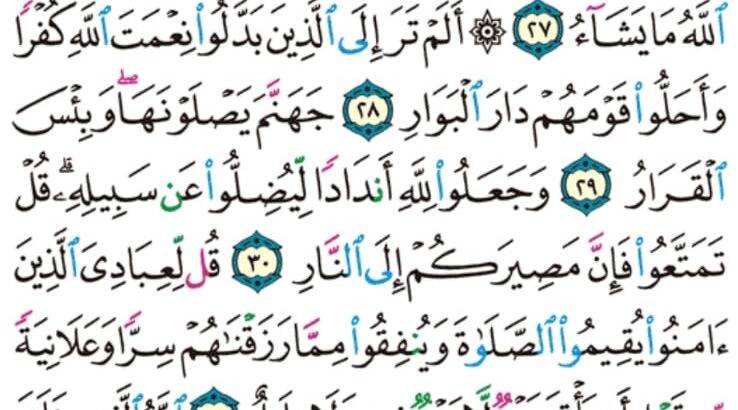 ٱللَّهُ مَا يَشَآءُ ٢٧ ۞ أَلَمْ تَرَ إِلَى ٱلَّذِينَ بَدَّلُوا۟ نِعْمَتَ ٱللَّهِ كُفْرًا
وَأَحَلُّوا۟ قَوْمَهُمْ دَارَ ٱلْبَوَارِ ٢٨ جَهَنَّمَ يَصْلَوْنَهَا ۖ وَبِئْسَ
ٱلْقَرَارُ ٢٩ وَجَعَلُوا۟ لِلَّهِ أَندَادًا لِّيُضِلُّوا۟ عَن سَبِيلِهِۦ ۗ قُلْ
تَمَتَّعُوا۟ فَإِنَّ مَصِيرَكُمْ إِلَى ٱلنَّارِ ٣٠ قُل لِّعِبَادِىَ ٱلَّذِينَ
ءَامَنُوا۟ يُقِيمُوا۟ ٱلصَّلَوٰةَ وَيُنفِقُوا۟ مِمَّا رَزَقْنَٰهُمْ سِرًّا وَعَلَانِيَةً